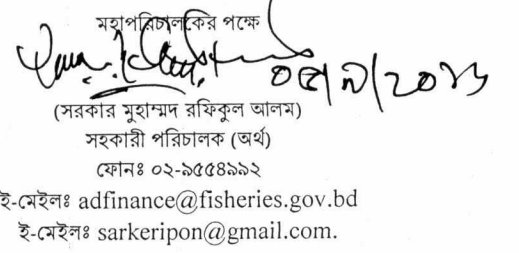 মহাপরিচালকের পক্ষে
(সরকার মুহাম্মদ রফিকুল আলম)
সহকারী পরিচালক (অর্থ)
ফোনঃ ০২-৯৫৫৪৯৯২
ই-মেইলঃ adfinance@fisheries.gov.bd
ই-মেইলঃ sarkeripon@gmail.com.